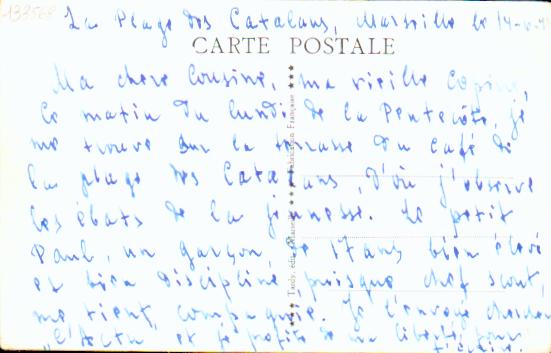 133568
La Plage des Catalans, Marseille le 14-6-
CARTE POSTALE
Ma chère Cousine, ma vieille Copine,
Ce matin du lundi de la Pentecôte, je
me trouve sur la terrasse du café de
la plage des Catalans, d'où j'observe
les ébats de la jeunesse. Le petit
Paul, un garçon de 17 ans bien élevé
et bien discipliné puisque chef scout,
me tient compagnie. Je l'envoye chercher
"l'Actu et je profite de ma liberté pour
Tardy, édit. Marseille
Fabrication Française